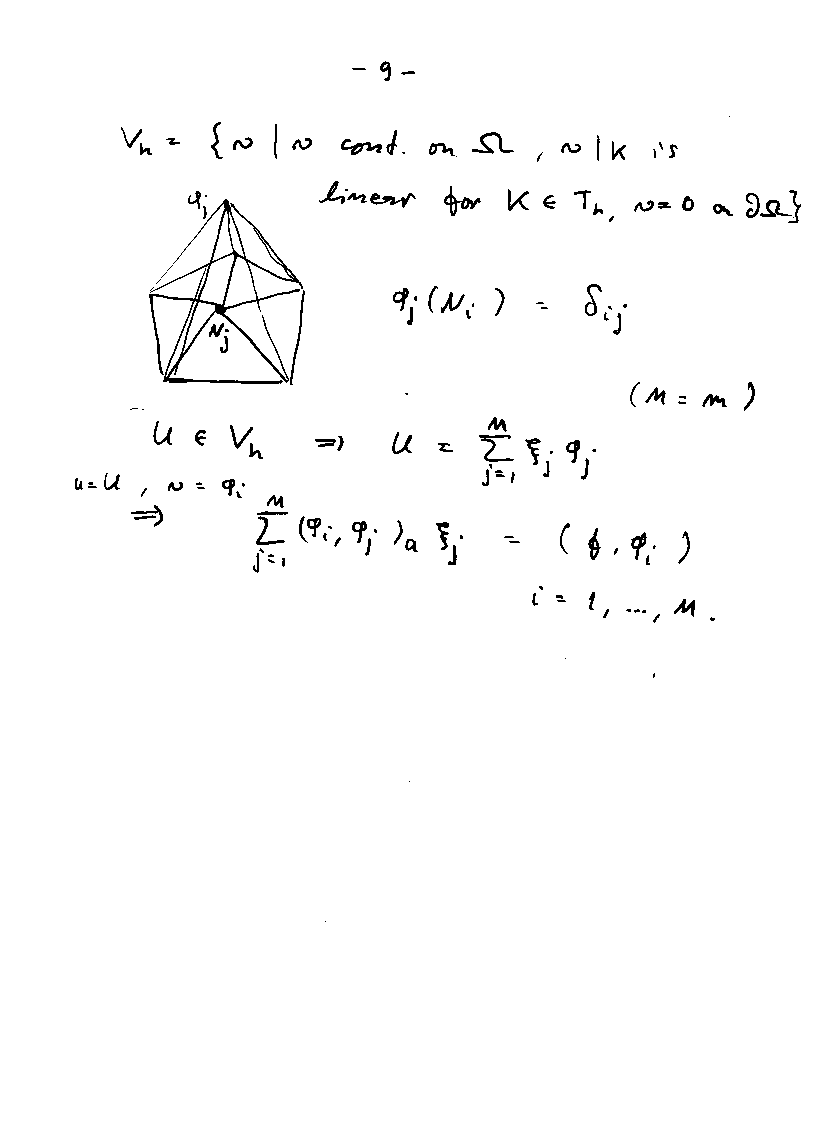 - 9 -
V_h = { v | v cont. on Ω, v|K is
linear for K ∈ T_h, v=0 on ∂Ω}
φ_j
φ_j(N_i) = δ_ij
N_j
(M = m)
U ∈ V_h ⇒ U = ∑_{j=1}^{M} ξ_j φ_j
u=U, v = φ_i
⇒ ∑_{j=1}^{M} (φ_i, φ_j)_a ξ_j = (f, φ_i)
i = 1, ..., M.